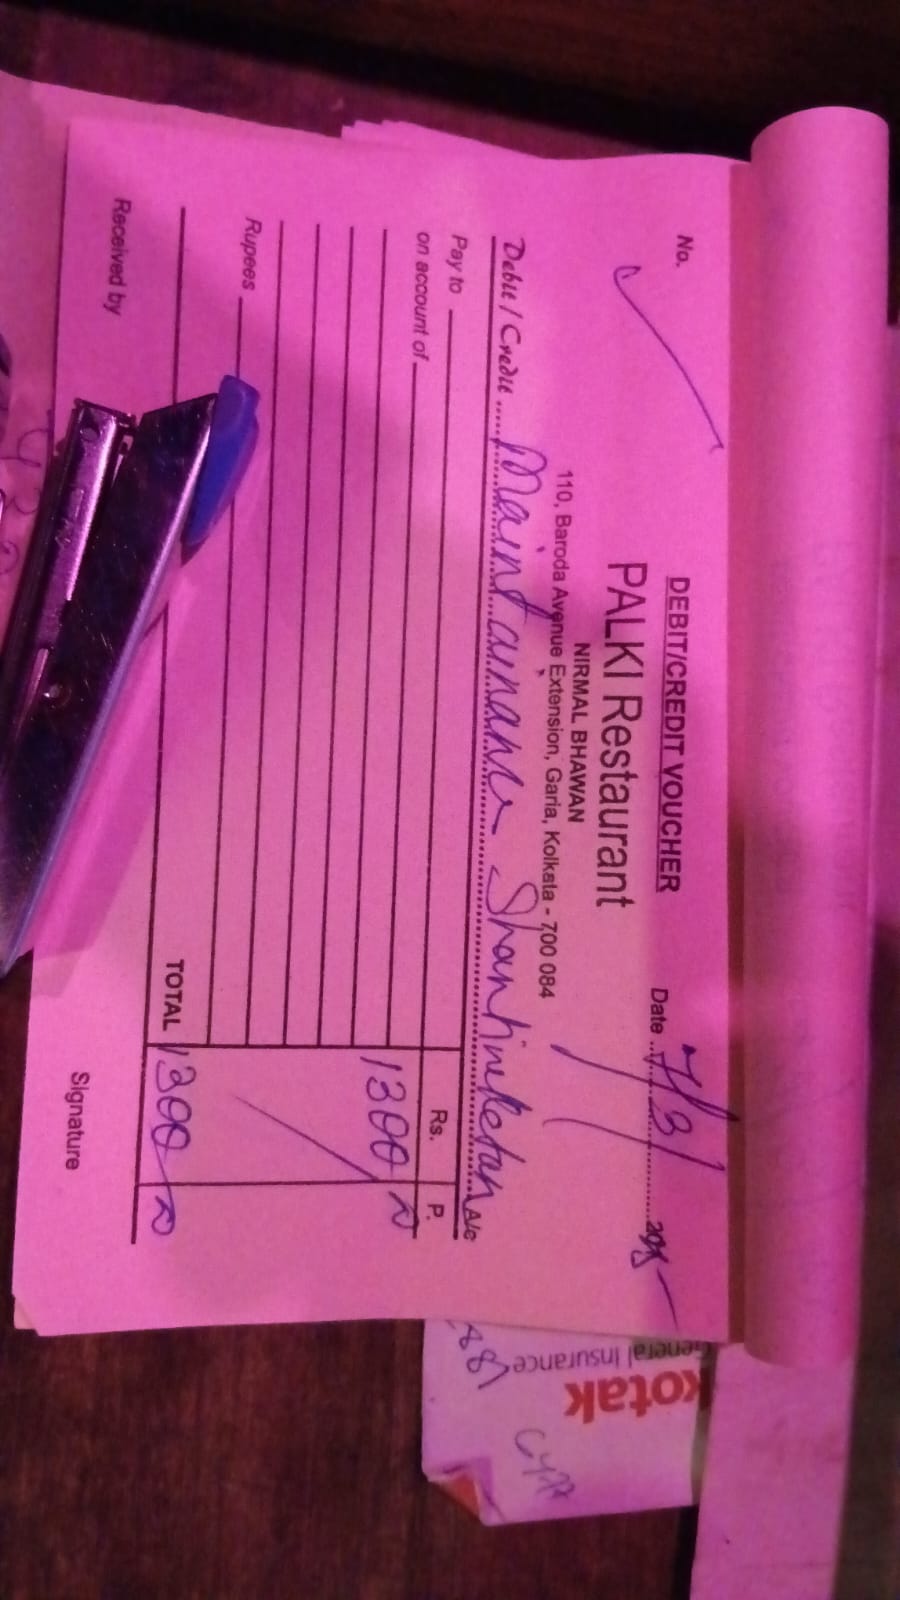 DEBIT/CREDIT VOUCHER
No.
Date 7/3
PALKI Restaurant
NIRMAL BHAWAN
110, Baroda Avenue Extension, Garia, Kolkata - 700 084
Debit / Credit Maintainance Shantiniketan A/c
Pay to
Rs. P.
on account of
1300
Rupees
TOTAL 1300
Received by
Signature
kotak
General Insurance